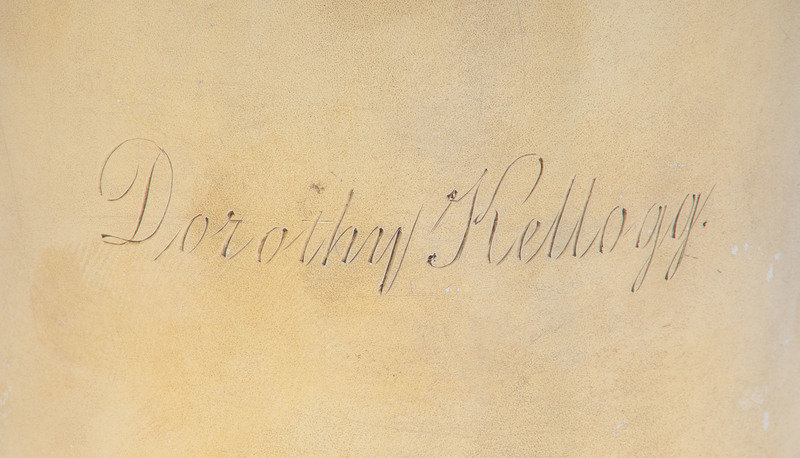 Dorothy Kellogg.